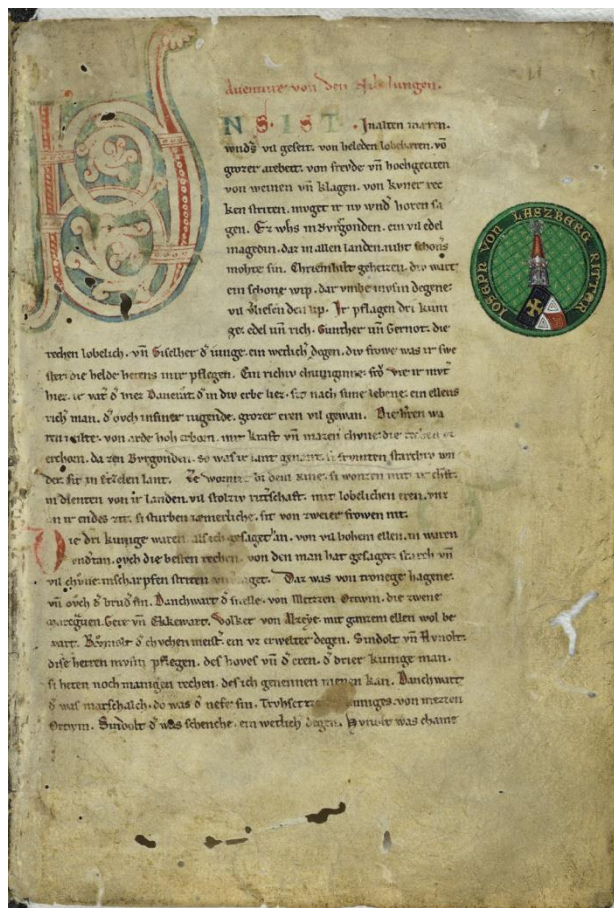 Auenture von den Nibelungen.
VNS IST. Inalten maren.
wnds vil geseit. von heleden lobebæren. võ
grozer arebeit. von frevde vñ hochgeciten
von weinen vñ klagen. von kvner rec
ken striten. mvget ir nv wnd horen sa
gen. Ez whs inBvrgonden. ein vil edel
magedin. daz in allen landen. niht schoners
mohte sin. Chriemhilt geheizen. div wart
ein schone wip. dar vmbe mvsin degene
vil vliesen den lip. Ir pflagen dri kuni
ge. edel vñ rich. Gunther vñ Gernot. die
rechen lobelich. vñ Giselher d̾ iunge. ein wetlich̾ degen. div frowe was ir swe
ster. die helde hetens inir pflegen. Ein richiv chuniginne. frǒ Vte ir mvt̾
hiez. ir vat̾ d̾ hiez Dancrat. d̾ in div erbe liez. sit nach sime lebene. ein ellens
rich̾ man. d̾ ovch insiner iugende. grozer eren vil gewan. Die h̾ren wa
ren milte. von arde hoh erborn. mit kraft vñ mazen chvne. die rechen vz
erchorn. da zen Bvrgonden. so was ir lant genant. si frvmten starchiv wn
der. sit in Etzelen lant. Ze wormz bi dem Rine. si wonten mit ir chft.
in dienten von ir landen. vil stolziv ritt̾schaft. mit lobelichen eren. vnz
an ir endes zit. si sturben iæmerliche. sit von zweier frowen nit.
Die dri kunige waren als ich gesaget han. von vil hohem ellen. in waren
vndertan. ovch die besten rechen. von den man hat gesaget. starch vñ
vil chvne. inscharpfen striten vnverzaget. Daz was von tronege hagene.
vñ ovch d̾ brud̾ sin. Danchwart d̾ snelle. von Metzzen Ortwin. die zwene
marcgraven. Gere vñ Ekkewart. Volker von Alzeye. mit ganzem ellen wol be
wart. Rvmolt d̾ chvchen meist̾. ein vz erwelter degen. Sindolt vñ Hvnolt.
dise herren mvsin pflegen. des hoves vñ d̾ eren. d̾ drier kunige man.
si heten noch manigen rechen. des ich genennen nienen kan. Danchwart
d̾ was marschalch. do was d̾ nefe sin. Trvhsetze des kuniges. von mezzen
Ortwin. Sindolt d̾ was schenche. ein wetlich degen. Hvnolt was chame
IOSEPH VON LASZBERG RITTER